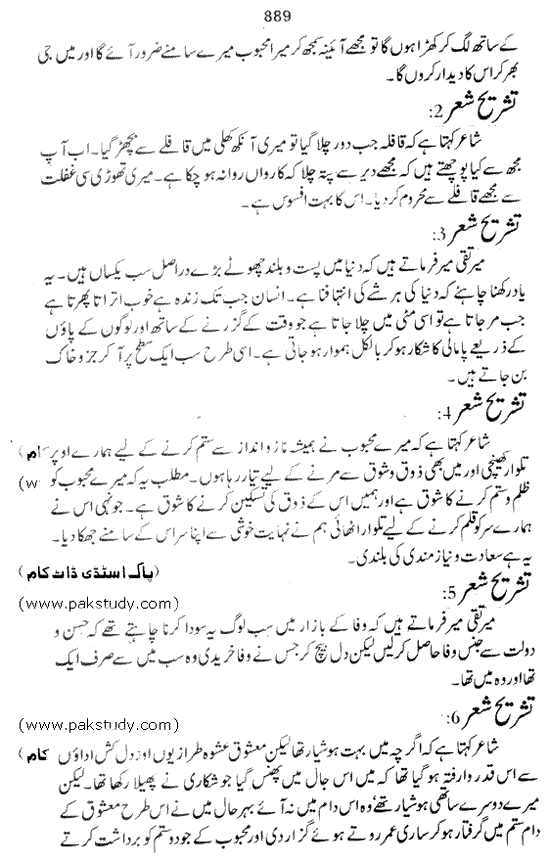 889
کے ساتھ لگ کر کھڑا ہوں گا تو مجھے آئینہ سمجھ کر میرا محبوب میرے سامنے ضرور آئے گا اور میں جی
بھر کر اس کا دیدار کروں گا۔
تشریح شعر 2:
شاعر کہتا ہے کہ قافلہ جب دور چلا گیا تو میری آنکھ کھلی میں قافلے سے بچھڑ گیا۔ اب آپ
مجھ سے کیا پوچھتے ہیں کہ مجھے دیر سے پتہ چلا کہ کارواں روانہ ہو چکا ہے۔ میری تھوڑی سی غفلت
سے مجھے قافلے سے محروم کر دیا۔ اس کا بہت افسوس ہے۔
تشریح شعر 3:
میر تقی میر فرماتے ہیں کہ دنیا میں پست و بلند چھوٹے بڑے دراصل سب یکساں ہیں۔ یہ
یاد رکھنا چاہئے کہ دنیا کی ہر شے کی انتہا فنا ہے۔ انسان جب تک زندہ ہے خوب اتراتا پھرتا ہے
جب مر جاتا ہے تو اسی مٹی میں چلا جاتا ہے جو وقت کے گزرنے کے ساتھ اور لوگوں کے پاؤں
کے ذریعے پامالی کا شکار ہو کر بالکل ہموار ہو جاتی ہے۔ اسی طرح سب ایک سطح پر آ کر جزو خاک
بن جاتے ہیں۔
تشریح شعر 4:
شاعر کہتا ہے کہ میرے محبوب نے ہمیشہ ناز و انداز سے ستم کرنے کے لیے ہمارے اوپر
تلوار کھینچی اور میں بھی ذوق و شوق سے مرنے کے لیے تیار رہا ہوں۔ مطلب یہ کہ میرے محبوب کو (w
ظلم و ستم کرنے کا شوق ہے اور ہمیں اس کے ذوق کی تسکین کرنے کا شوق ہے۔ جونہی اس نے
ہمارے سر کو قلم کرنے کے لیے تلوار اٹھائی ہم نے نہایت خوشی سے اپنا سر اس کے سامنے جھکا دیا۔
یہ ہے سعادت و نیاز مندی کی بلندی۔
(پاک اسٹڈی ڈاٹ کام)
تشریح شعر 5:
(www.pakstudy.com)
میر تقی میر فرماتے ہیں کہ وفا کے بازار میں سب لوگ یہ سودا کرنا چاہتے تھے کہ حسن و
دولت سے جنس وفا حاصل کر لیں لیکن دل بیچ کر جس نے وفا خریدی وہ سب میں سے صرف ایک
تھا اور وہ میں تھا۔
تشریح شعر 6:
(www.pakstudy.com)
شاعر کہتا ہے کہ اگرچہ میں بہت ہوشیار تھا لیکن معشوق عشوہ طرازیوں اور دل کش اداؤں کام)
سے اس قدر وارفتہ ہو گیا تھا کہ میں اس جال میں پھنس گیا جو شکاری نے پھیلا رکھا تھا۔ لیکن
میرے دوسرے ساتھی ہوشیار تھے وہ اس دام میں نہ آئے بہرحال میں نے اس طرح معشوق کے
دام ستم میں گرفتار ہو کر ساری عمر روتے ہوئے گزار دی اور محبوب کے جور و ستم کو برداشت کرتے